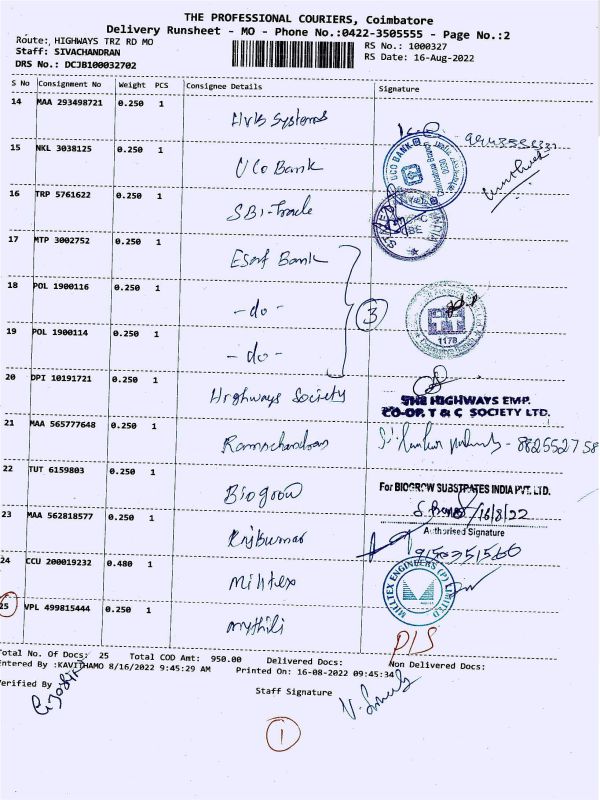 THE PROFESSIONAL COURIERS, Coimbatore
Delivery Runsheet - MO - Phone No.:0422-3505555 - Page No.:2
Route: HIGHWAYS TRZ RD MO
RS No.: 1000327
Staff: SIVACHANDRAN
RS Date: 16-Aug-2022
DRS No.: DCJB100032702
S No Consignment No Weight PCS Consignee Details Signature
14 MAA 293498721 0.250 1 Hvb Systems
15 NKL 3038125 0.250 1 UCO Bank
UCO BANK
16 TRP 5761622 0.250 1 SBI-Trade
17 MTP 3002752 0.250 1 Esaf Bank
18 POL 1900116 0.250 1 -do-
3
19 POL 1900114 0.250 1 -do-
1178
20 DPI 10191721 0.250 1 Highways Society
THE HIGHWAYS EMP.
CO-OP. T & C SOCIETY LTD.
21 MAA 565777648 0.250 1 Ramachandran
22 TUT 6159803 0.250 1 Biogrow
For BIOGROW SUBSTRATES INDIA PVT. LTD.
16/8/22
Authorised Signature
23 MAA 562818577 0.250 1 Rajkumar
9150351560
24 CCU 200019232 0.480 1 Milltex
MILLTEX ENGINEERS (P) LIMITED
25 VPL 499815444 0.250 1 Mythili
D/S
Total No. Of Docs: 25 Total COD Amt: 950.00 Delivered Docs: Non Delivered Docs:
Entered By :KAVITHAMO 8/16/2022 9:45:29 AM Printed On: 16-08-2022 09:45:34
Verified By Staff Signature
1